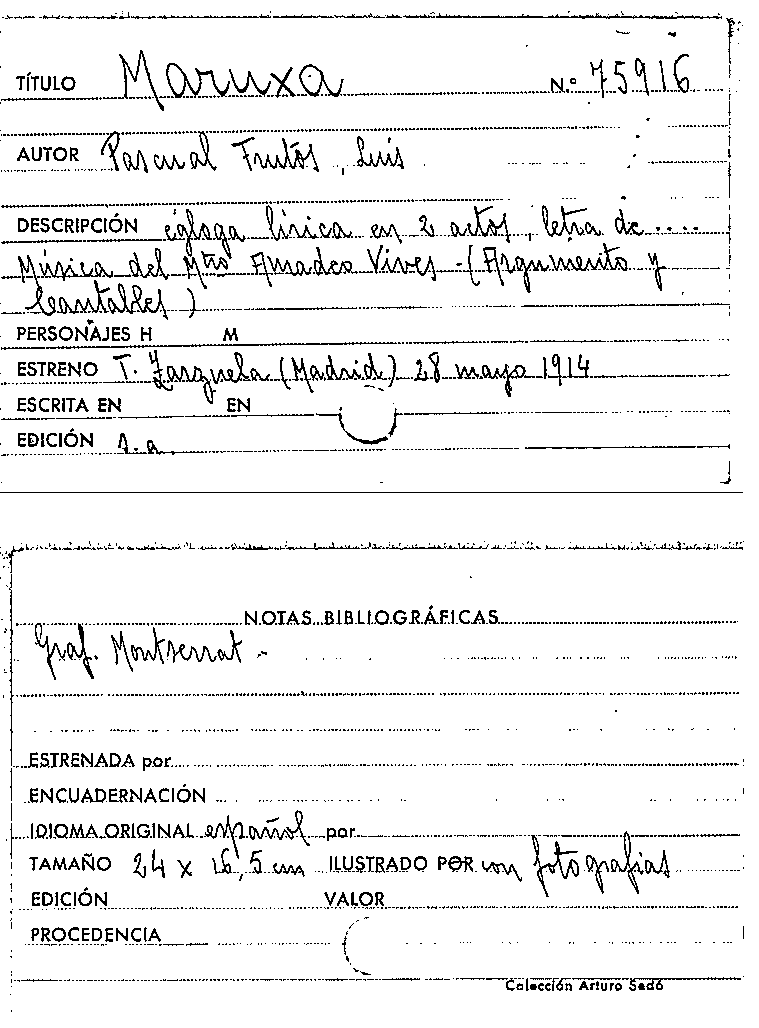 TÍTULO Maruxa N.º 75916
AUTOR Pascual Frutos, Luis
DESCRIPCIÓN égloga lírica en 2 actos, letra de ....
Música del Mtro Amadeo Vives - (Argumento y
Cantables)
PERSONAJES H M
ESTRENO T. Zarzuela (Madrid) 28 mayo 1914
ESCRITA EN EN
EDICIÓN s.a.
NOTAS BIBLIOGRÁFICAS
Graf. Montserrat -
ESTRENADA por
ENCUADERNACIÓN
IDIOMA ORIGINAL español por
TAMAÑO 24 x 16,5 cm ILUSTRADO POR con fotografías
EDICIÓN VALOR
PROCEDENCIA
Colección Arturo Sedó